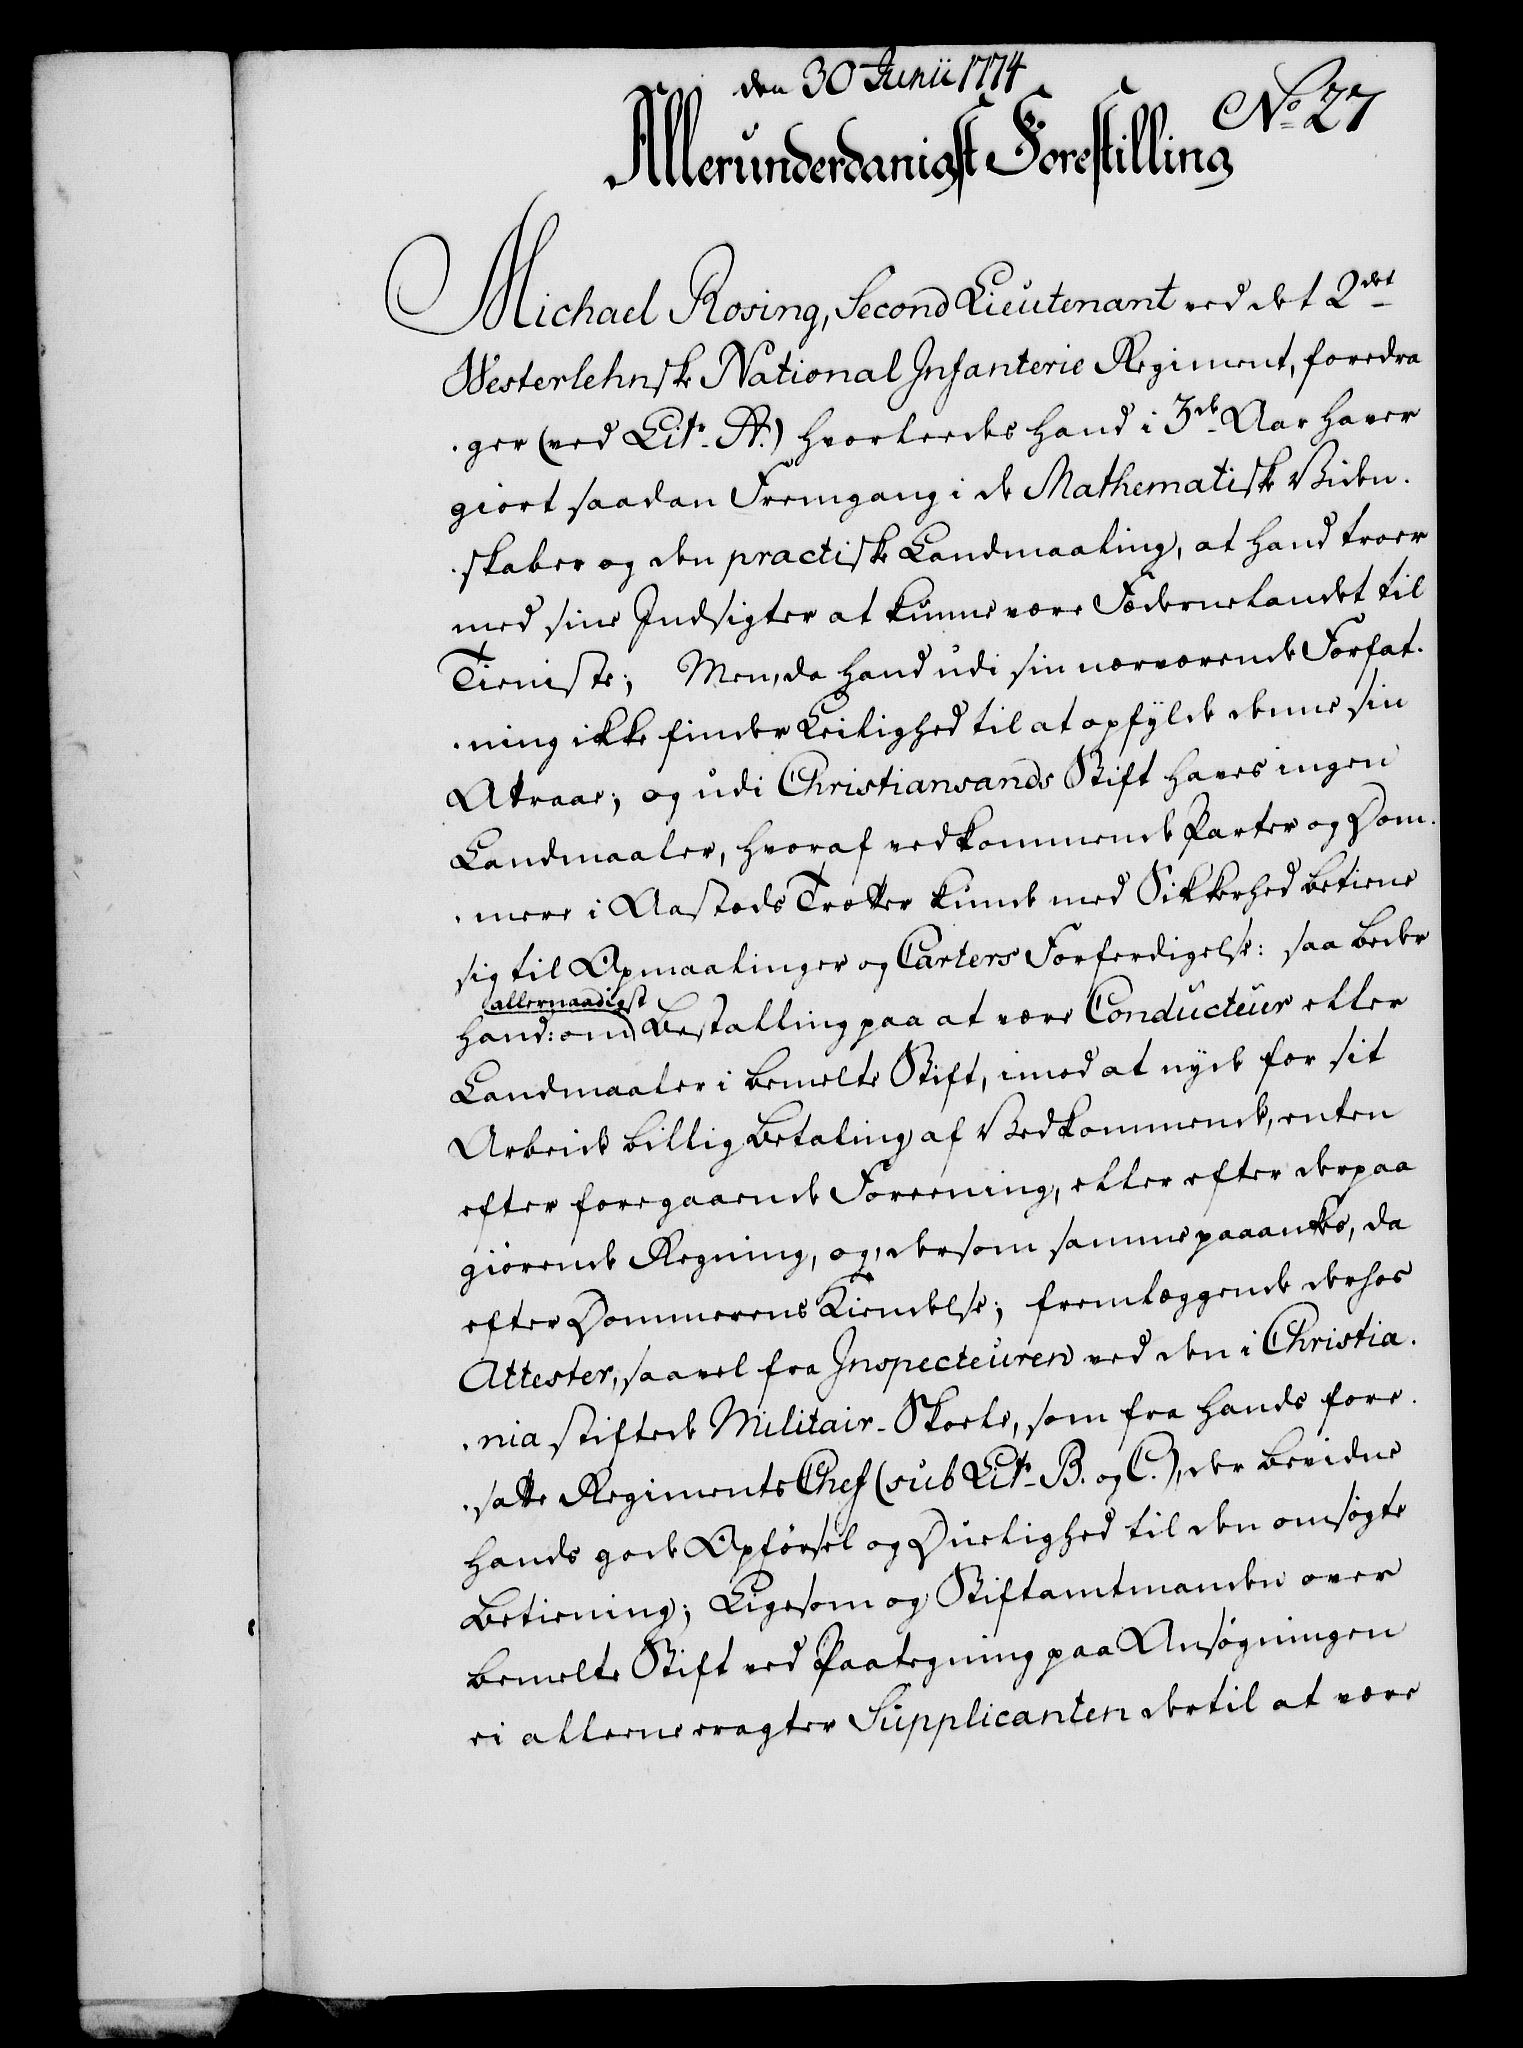 den 30 Junii 1774
No 27
Allerunderdanigst Forestilling
Michael Rosing, Second Lieutenant ved det 2det
Westerlehnske National Infanterie Regiment, foredra
ger (ved Litr. A.) hvorledes hand i 3de Aar haver
giort saadan Fremgang i de Mathematiske Viden
skaber og den practiske Landmaaling, at hand troer
med sine Indsigter at kunne være Fødernelandet til
Tieniste; Men, da hand udi sin nærværende Forfat
ning ikke finder Leilighed til at opfylde denne sin
Atraae; og udi Christiansands Stift haves ingen
Landmaaler, hvoraf vedkommende Parter og Dom
mere i Aasteds Trætter kunde med Sikkerhed betiene
sig til Opmaalinger og Carters Forferdigelse: saa beder
allernaadigst
hand: om Bestalling paa at være Conducteur eller
Landmaaler i bemelte Stift, imod at nyde for sit
Arbeide billig Betaling af Vedkommende, enten
efter foregaaende Foreening, eller efter derpaa
giørende Regning, og, dersom samme paaankes, da
efter Dommerens Kiendelse; fremlæggende derhos
Attester, saavel fra Inspecteuren ved den i Christia
nia stiftede Militair-Skoele, som fra hands fore
satte Regiments Chef (sub Litr. B. og C.), der bevidne
hands gode Opførsel og Duelighed til den omsøgte
Betiening; Ligesom og Stiftamtmanden over
bemelte Stift ved Paategning paa Ansøgningen
ei alleene eragter Supplicanten dertil at være